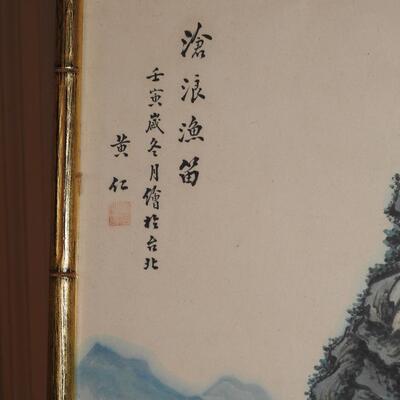 滄浪漁笛
壬寅歲冬月繪於台北
黃仁